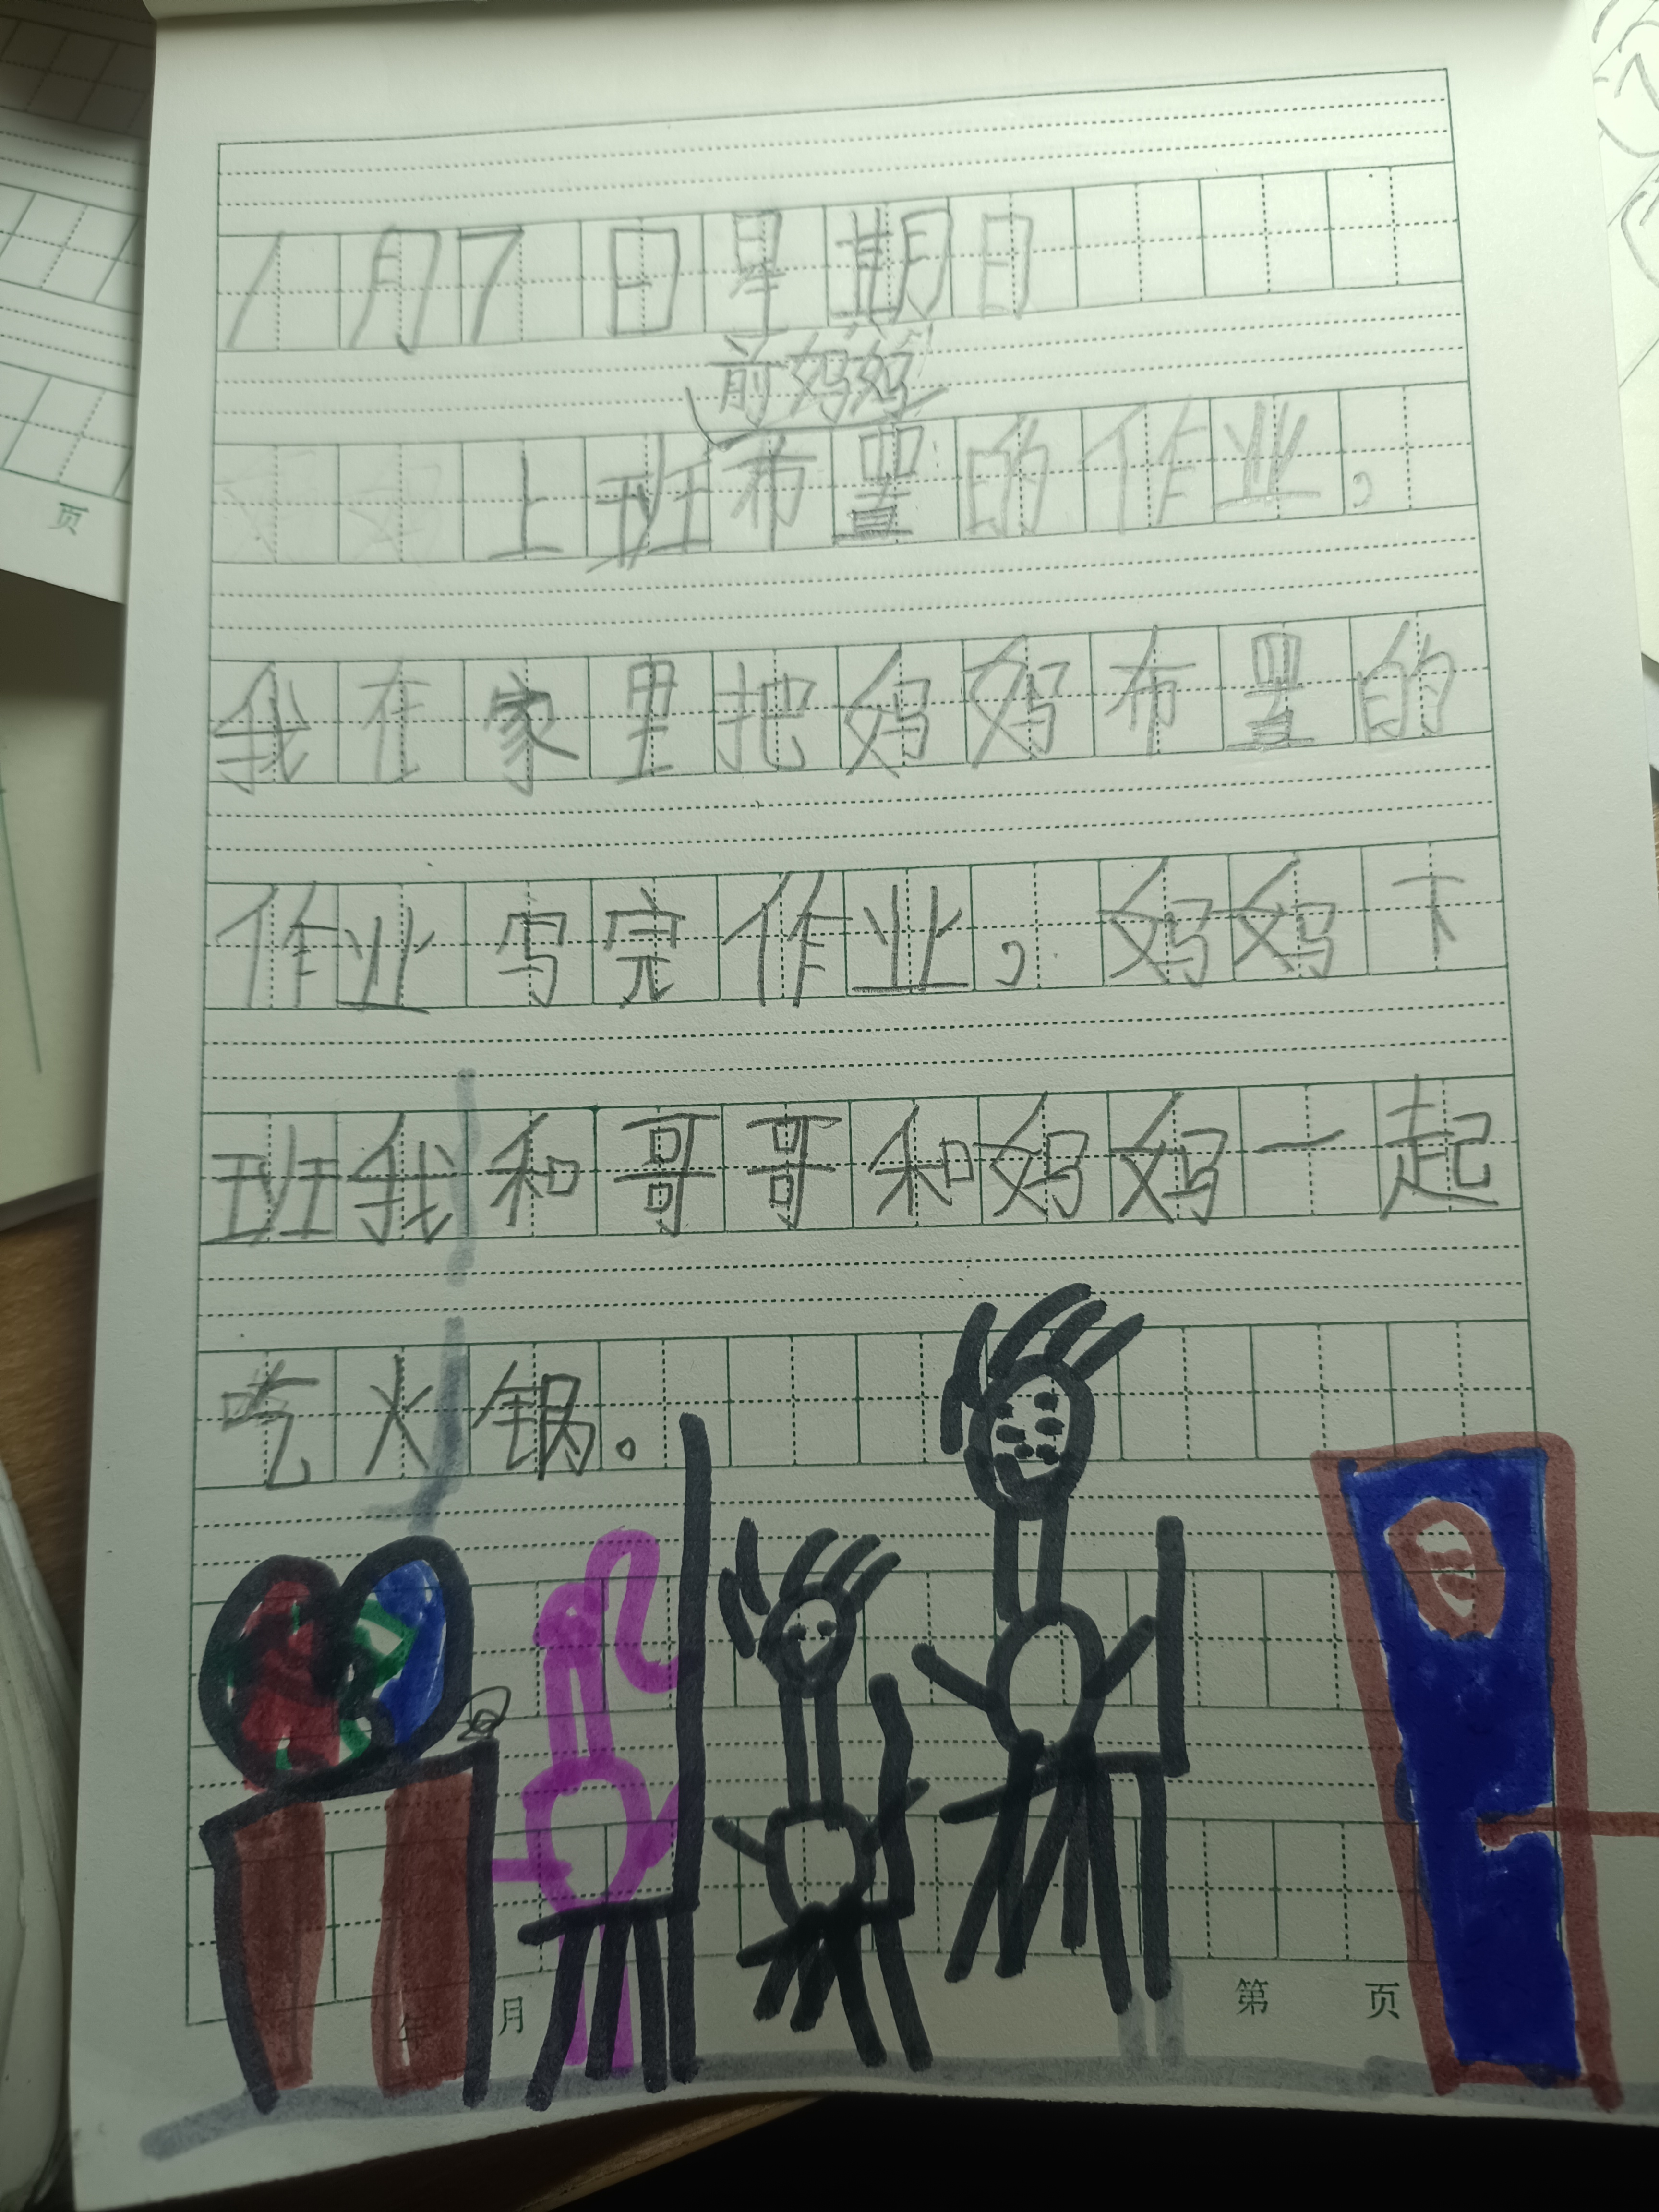 1月7日星期日
前妈妈
上班布置的作业，
我在家里把妈妈布置的
作业写完作业，妈妈下
班我和哥哥和妈妈一起
吃火锅。
年 月 第 页
页